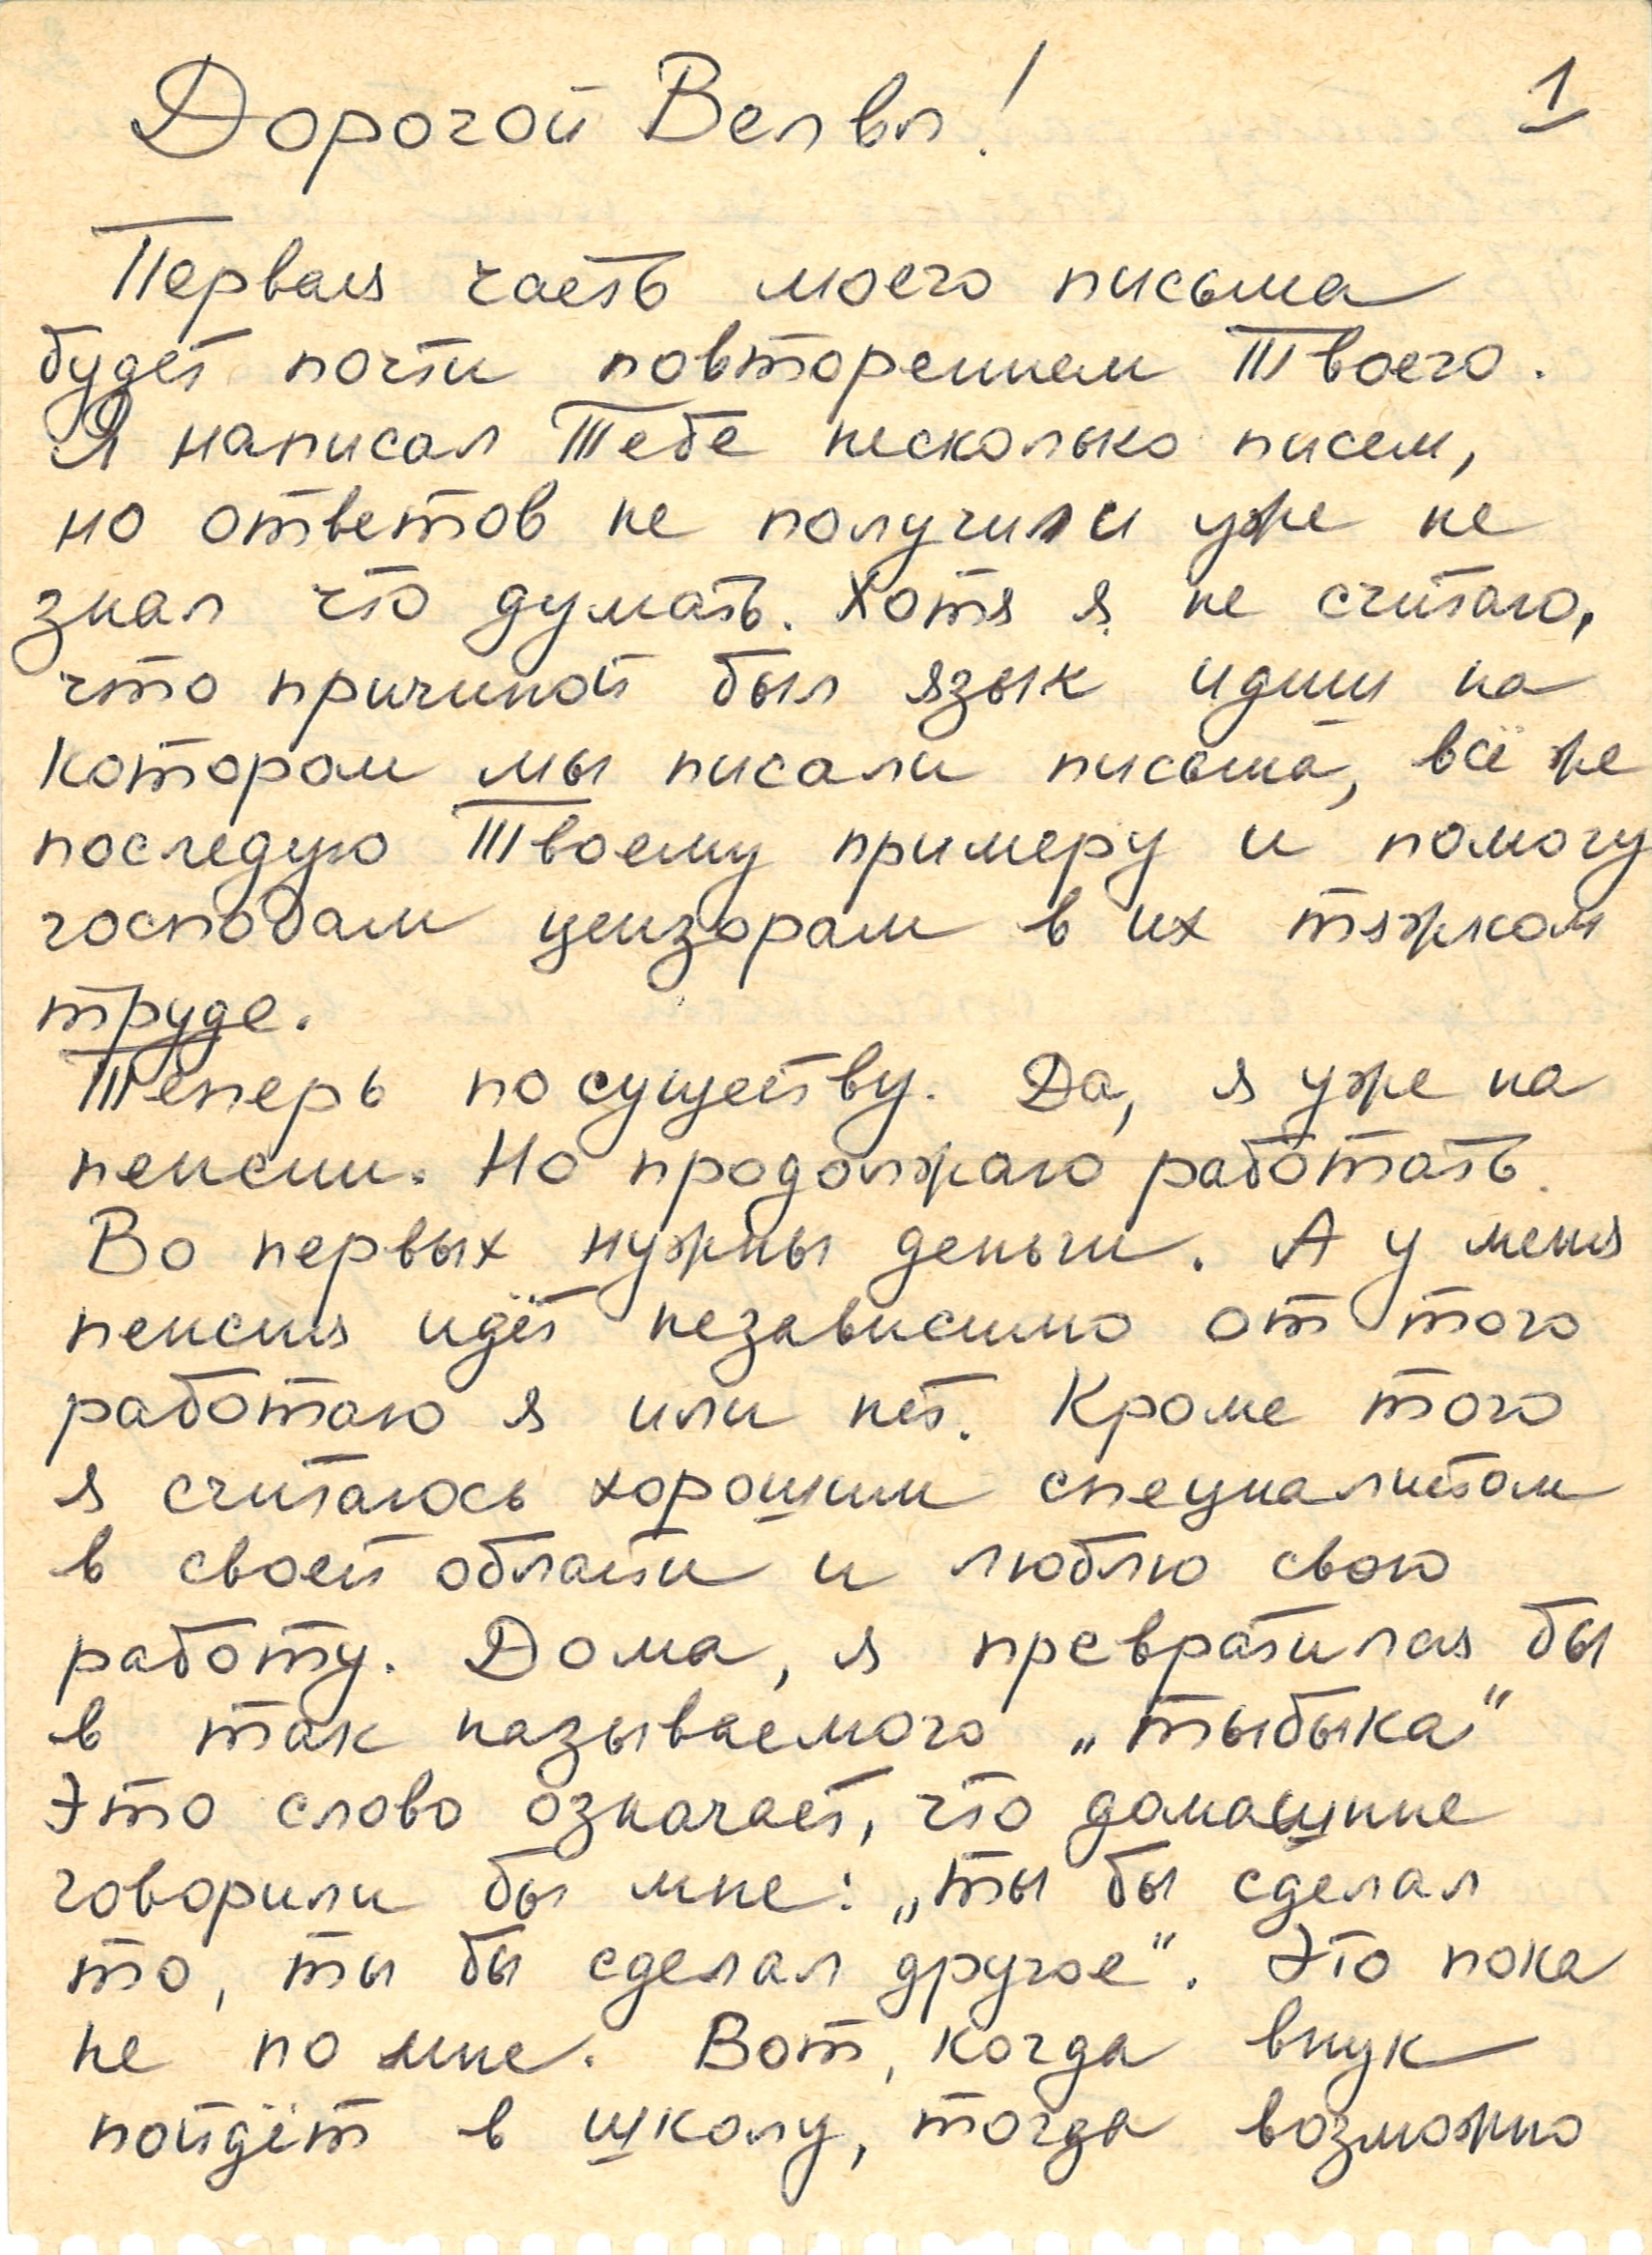 Дорогой Велвл! 1
Первая часть моего письма
будет почти повторением Твоего.
Я написал Тебе несколько писем,
но ответов не получил и уже не
знал что думать. Хотя я не считаю,
что причиной был язык идиш на
котором мы писали письма, всё же
последую Твоему примеру и помогу
господам цензорам в их тяжком
труде.
Теперь по существу. Да, я уже на
пенсии. Но продолжаю работать.
Во первых нужны деньги. А у меня
пенсия идёт независимо от того
работаю я или нет. Кроме того
я считаюсь хорошим специалистом
в своей области и люблю свою
работу. Дома, я превратился бы
в так называемого „тыбыка“
Это слово означает, что домашние
говорили бы мне: „ты бы сделал
то, ты бы сделал другое“. Это пока
не по мне. Вот, когда внук
пойдёт в школу, тогда возможно